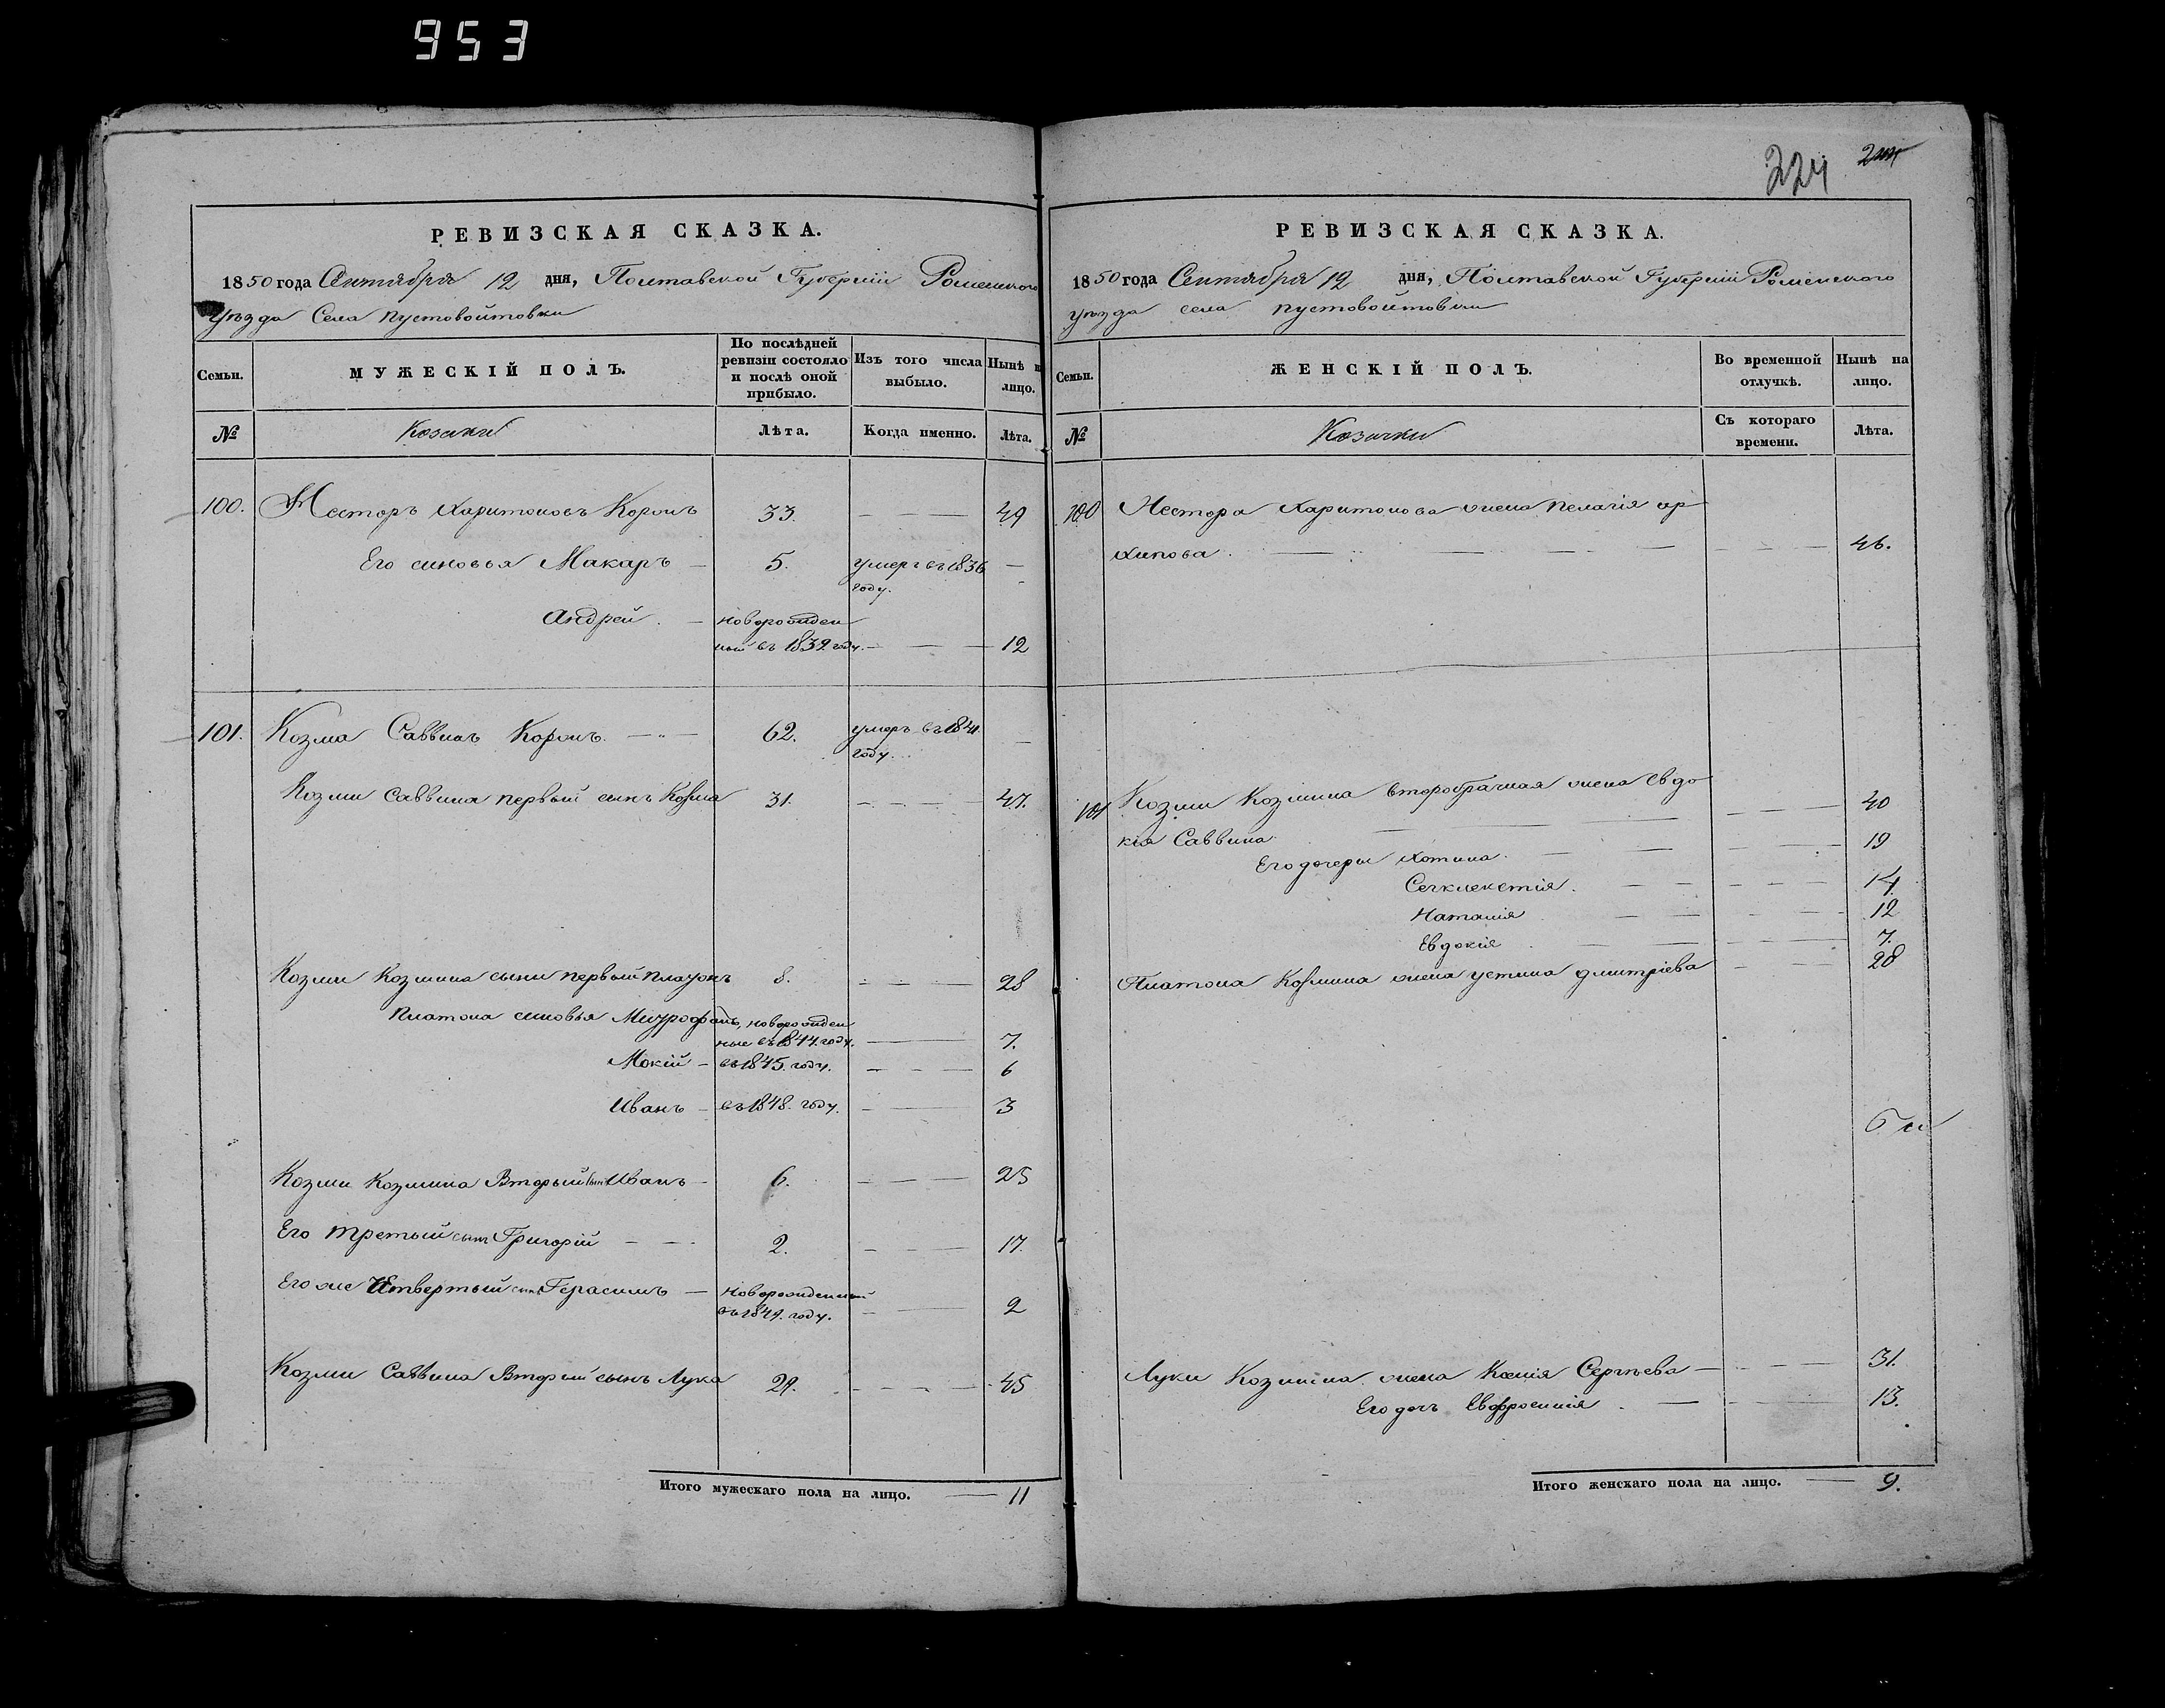 953
РЕВИЗСКАЯ СКАЗКА.
1850 года Сентября 12 дня, Полтавской Губерніи Роменского
уѣзда Села Пустовойтовки
Семьи.
МУЖЕСКІЙ ПОЛЪ.
По послѣдней
ревизіи состояло
и послѣ оной
прибыло.
Изъ того числа
выбыло.
Нынѣ н
лицо.
№
Козаки
Лѣта.
Когда именно.
Лѣта.
100. Несторъ Харитоновъ Коронъ 33. 49
Его сыновья Макаръ 5. умеръ въ 1836
году.
Андрей новорожден
ный въ 1839 году. 12
101. Козма Саввинъ Коронъ. 62. умеръ въ 1841
году.
Козми Саввина первый сынъ Козма 31. 47.
Козми Козмина сыни первый Платонъ 8. 28
Платона сыновья Митрофанъ, новорожден
ные въ 1844. году. 7.
Мокій въ 1845. году. 6
Иванъ въ 1848. году. 3
Козми Козмина Вторый сынъ Иванъ 6. 25
Его третый сынъ Григорій 2. 17.
Его же Четвертый сынъ Герасимъ Новорожденный
въ 1849. году. 2
Козми Саввина Вторый сынъ Лука 29. 45
Итого мужескаго пола на лицо. 11
224
РЕВИЗСКАЯ СКАЗКА.
1850 года Сентября 12 дня, Полтавской Губерніи Роменского
уѣзда села Пустовойтовки
Семьи.
ЖЕНСКІЙ ПОЛЪ.
Во временной
отлучкѣ.
Нынѣ на
лицо.
№
Козачки
Съ котораго
времени.
Лѣта.
100 Нестора Харитонова жена Пелагія Ар
хипова. 46.
101 Козми Козмина второбрачная жена Евдо 40
кія Саввина
Его дочери Хотина. 19
Секлекетія. 14.
Наталія 12
Евдокія 7.
Платона Козмина жена Устина Дмитріева 28
Луки Козмина жена Ксенія Сергѣева 31.
Его дочь Евфросинія. 13.
Итого женскаго пола на лицо. 9.